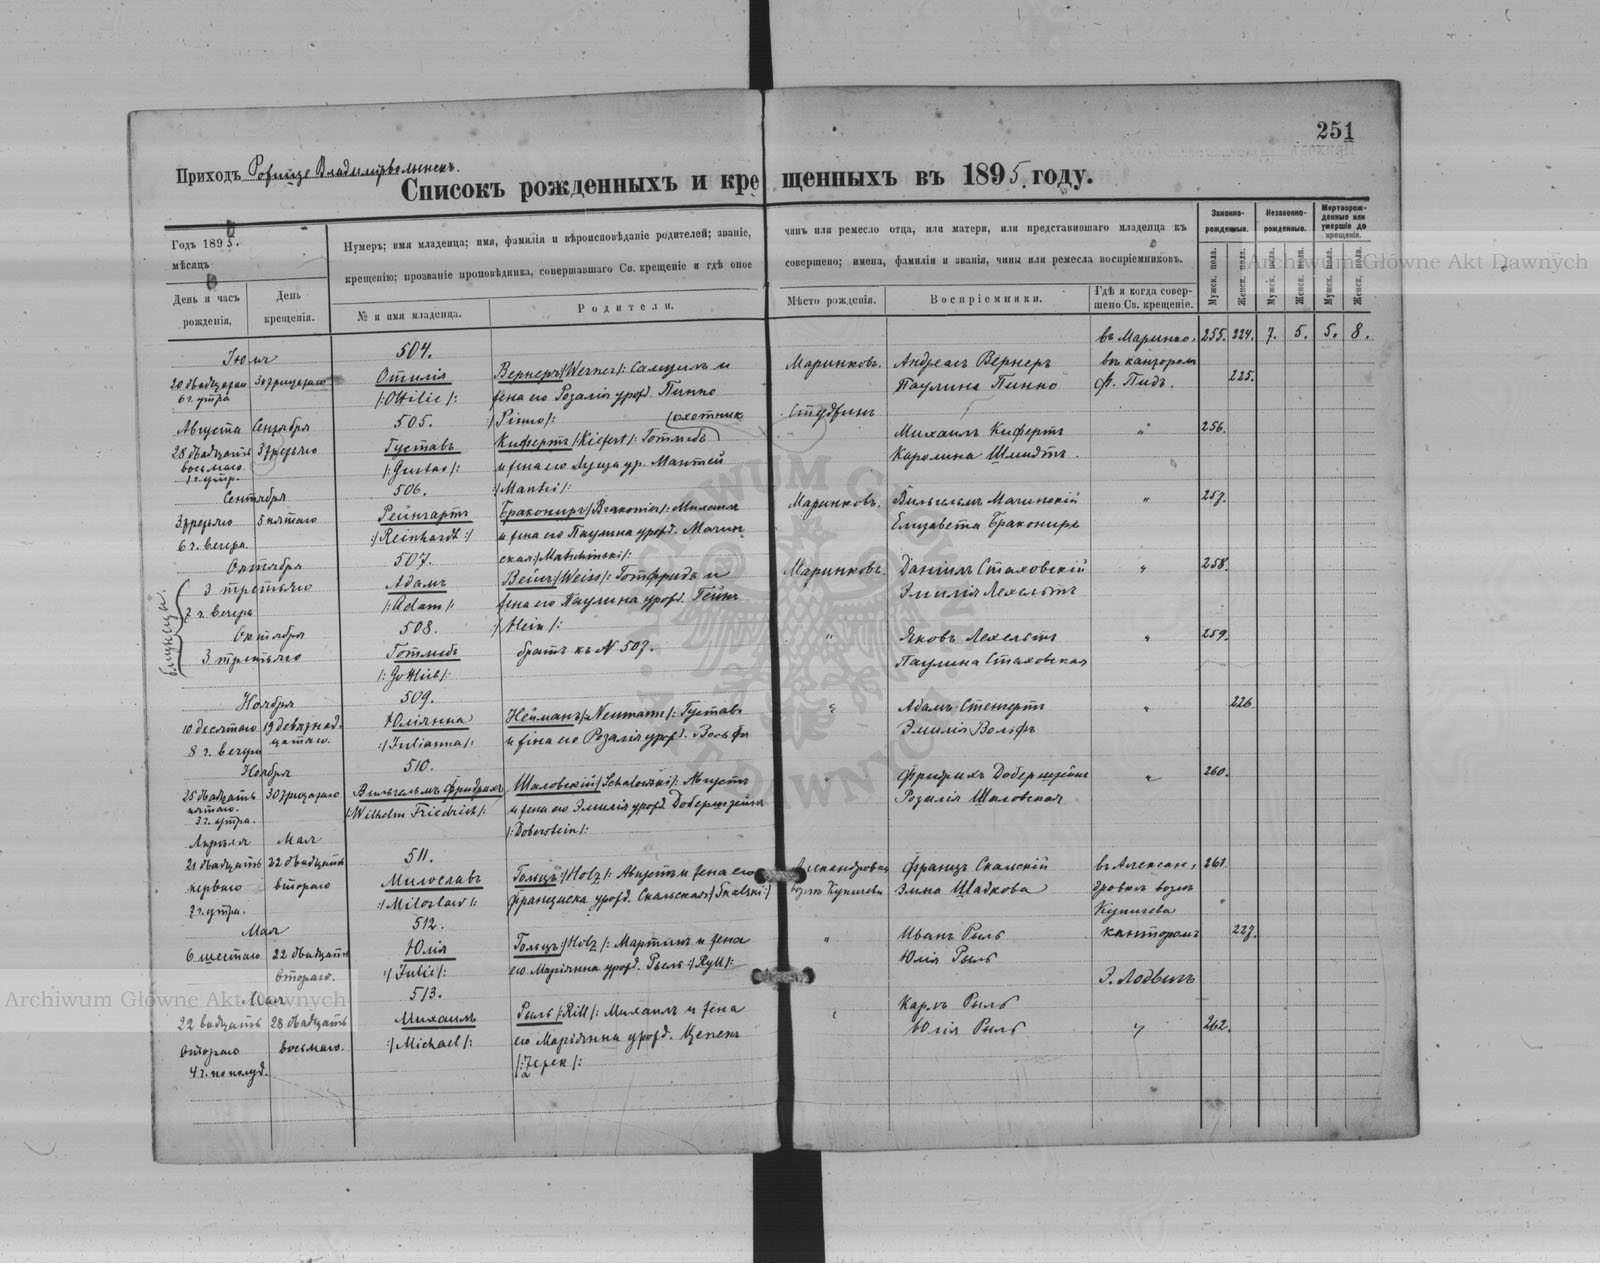 251
Приходъ Рожище Владимірволынскъ.
Списокъ рожденныхъ и крещенныхъ въ 1895 году.
Годъ 1895.
мѣсяцъ
День и часъ рожденія.
День крещенія.
Нумеръ; имя младенца; имя, фамилія и вѣроисповѣданіе родителей; званіе, чинъ или ремесло отца, или матери, или представившаго младенца къ
крещенію; прозваніе проповѣдника, совершавшаго Св. крещеніе и гдѣ оное совершено; имена, фамиліи и званія, чины или ремесла воспріемниковъ.
№ и имя младенца.
Родители.
Мѣсто рожденія.
Воспріемники.
Гдѣ и когда совершено Св. крещеніе.
Законнорожденные.
Незаконнорожденные.
Мертворожденные или умершіе до крещенія.
Мужск. пола. Женск. пола. Мужск. пола. Женск. пола. Мужск. пола. Женск. пола.
въ Маринко- 255. 224. 7. 5. 5. 8.
Іюнь 504. Маринковъ. Андреасъ Вернеръ вѣ канторомъ
20 двадцатаго 30 тридцатаго Отилія Вернеръ /:Werner/: Самуилъ и Паулина Пинно Ф. Пидъ. 225.
6 ч. утра /:Ottilie/: жена его Розалія урожд. Пинно
Августа Сентября 505. :/Pinno/: (охотник
28 двадцать 3 третьяго Густавъ Кифертъ /:Kiefert/: Готлибъ Михаилъ Кифертъ " 256.
восьмаго /:Gustav/: и жена его Луиза ур. Мантей Каролина Шмидтъ.
1 ч. утр. 506. :/Mantei/:
Сентября
3 третьяго 5 пятаго Рейнгартъ Браконіръ /:Brakonier/: Михаилъ Маринковъ. Вильгельмъ Мачинскій " 257.
6 ч. вечера. :/Reinhardt:/ и жена его Паулина урожд. Мачин- Елизавета Браконіре
Октября 507. ская :/Matschinski/:
3 третьяго Адамъ Вейсъ /:Weiss/: Готфридъ и Маринковъ. Даніилъ Стаховскій " 258.
2 ч. вечера /:Adam/: жена его Паулина урожд. Гейнъ Эмилія Лехельтъ
близнецы.
Октября 508. :/Hein/:
3 третьяго Готлибъ братъ къ N 507. " Яковъ Лехельтъ " 259.
/:Gottlieb/: Паулина Стаховская
Ноября 509.
10 десятаго 19 девятнад- Юліянна Нейманъ /:Neumann/: Густавъ " Адамъ " 226.
8 ч. вечера цатаго. :/Julianna/: и жена его Розалія урожд. Вольфъ Эмилія Вольфъ
Ноября 510.
25 двадцать 30 тридцатаго Вильгельмъ Фридрихъ Шаловскій /:Schalowski/: Августъ " Фридрихъ Доберштейнъ " 260.
пятаго. /:Wilhelm Friedrich/: и жена его Эмилія урожд. Доберштейнъ Розалія Шаловская
3 ч. утра. /:Doberstein/:
Апрѣля Мая 511.
21 двадцать 22 двадцать Милославъ Гольцъ :/Holz/: Августъ и жена его Францъ Скальскій въ Алексан- 261.
перваго втораго :/Miloslaw/: Франциска урожд. Скальская /:Skalski:/ Эмма
7 ч. утра. Купичева
Мая 512.
6 шестаго 22 двадцать Юлія Гольцъ :/Holz/: Мартинъ и жена " Иванъ Рыль канторомъ 227.
втораго. :/Julie/: его Маріянна урожд. Рыль :/Ryll/: Юлія Рыль
Мая 513. Э. Лодвигъ
22 двадцать 28 двадцать Михаилъ Рыль /:Rill/: Михаилъ и жена " Карлъ Рыль
втораго восьмаго. :/Michael/: его Маріянна урожд. Цепекъ Юлія Рыль " 262.
4 ч. по полуд. /:Zepek/:
Archiwum Główne Akt Dawnych
Archiwum Główne Akt Dawnych